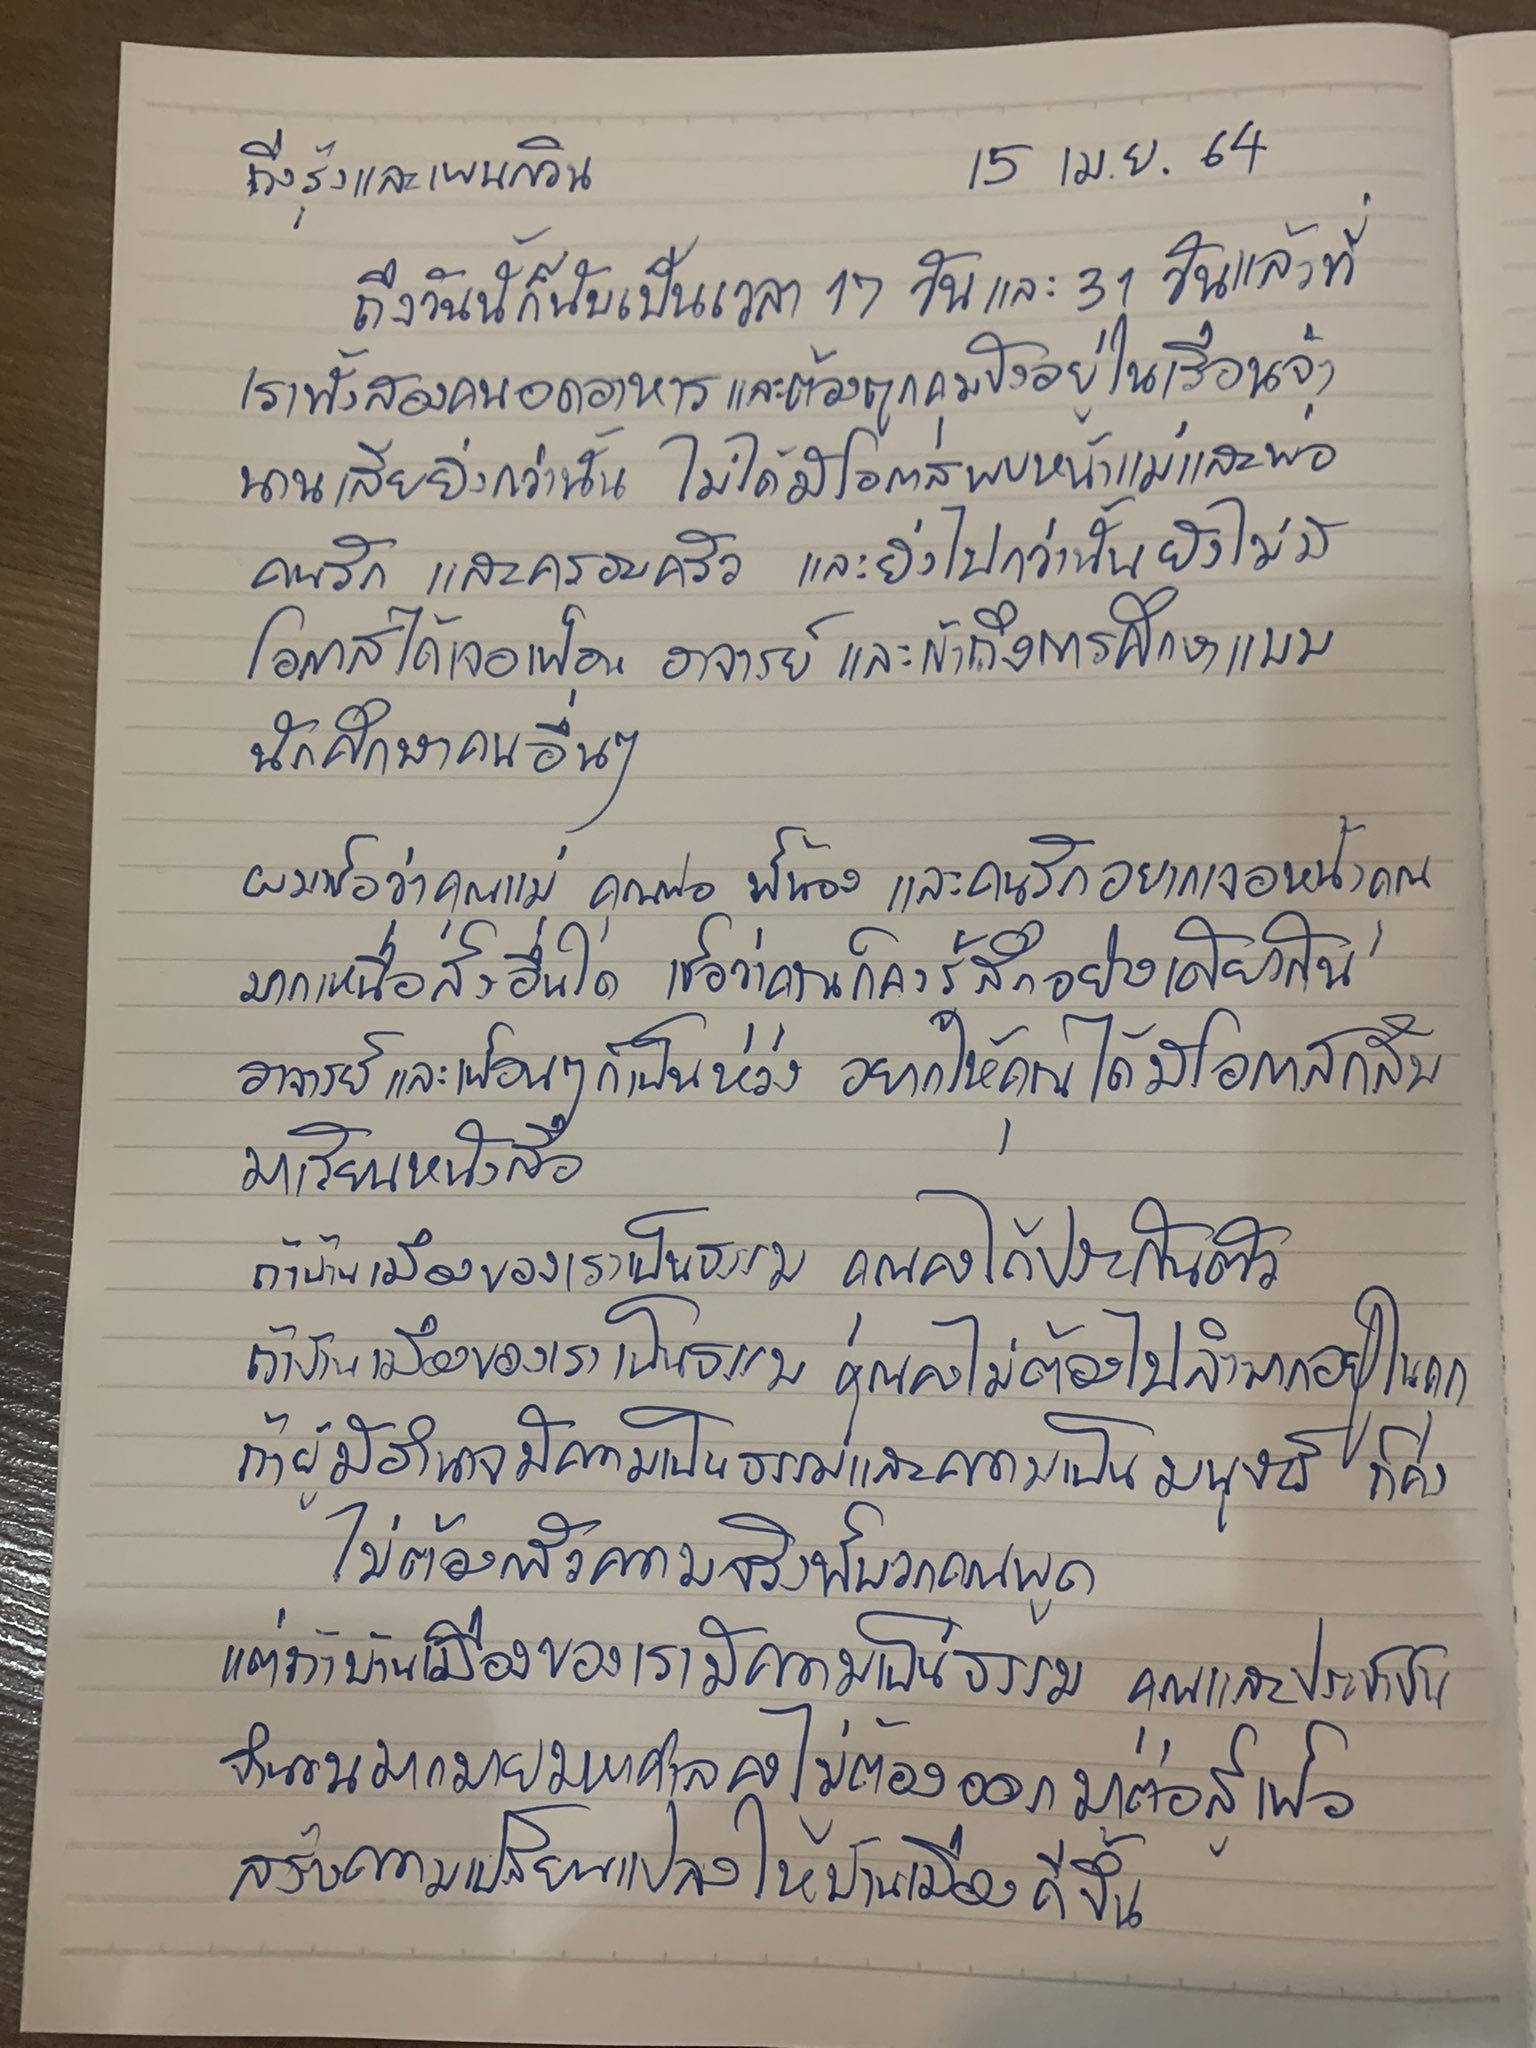 ถึงรุ้งและเพนกวิน 15 เม.ย. 64
ถึงวันนี้ก็นับเป็นเวลา 17 วันและ 31 วันแล้วที่
เราทั้งสองคนอดอาหารและต้องถูกคุมขังอยู่ในเรือนจำ
นานเสียยิ่งกว่านั้น ไม่ได้มีโอกาสพบหน้าแม่และพ่อ
คนรัก และครอบครัว และยิ่งไปกว่านั้นยังไม่มี
โอกาสได้เจอเพื่อน อาจารย์ และเข้าถึงการศึกษาแบบ
นักศึกษาคนอื่นๆ
ผมเชื่อว่าคุณแม่ คุณพ่อ พี่น้อง และคนรักอยากเจอหน้าคุณ
มากเหนือสิ่งอื่นใด เชื่อว่าคุณก็คงรู้สึกอย่างเดียวกัน
อาจารย์และเพื่อนๆก็เป็นห่วง อยากให้คุณได้มีโอกาสกลับ
มาเรียนหนังสือ
ถ้าบ้านเมืองของเราเป็นธรรม คุณคงได้ประกันตัว
ถ้าบ้านเมืองของเราเป็นธรรม คุณคงไม่ต้องไปลำบากอยู่ในคุก
ถ้าผู้มีอำนาจมีความเป็นธรรมและความเป็นมนุษย์ ก็คง
ไม่ต้องกลัวความจริงที่พวกคุณพูด
แต่ถ้าบ้านเมืองของเรามีความเป็นธรรม คุณและประชาชน
จำนวนมากมายมหาศาลคงไม่ต้องออกมาต่อสู้เพื่อ
สร้างความเปลี่ยนแปลงให้บ้านเมืองดีขึ้น